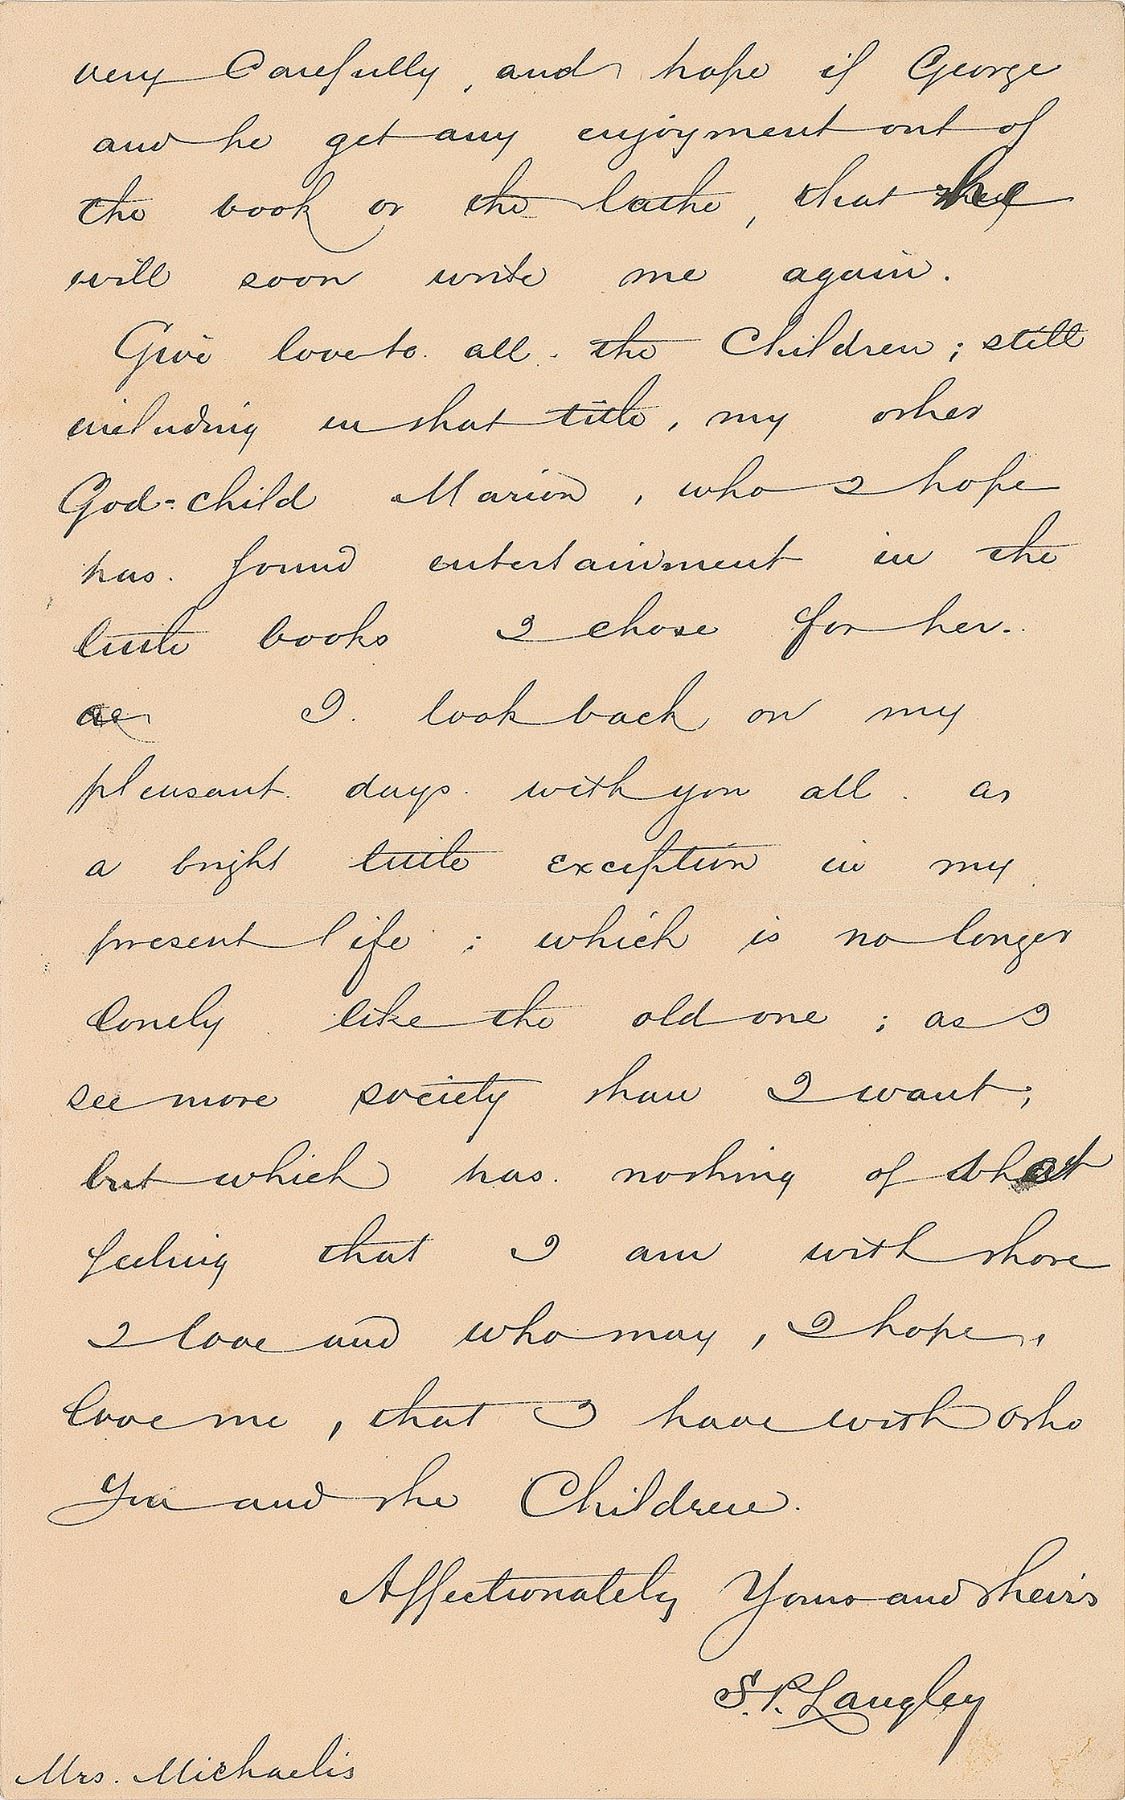 very Carefully, and hope if George
and he get any enjoyment out of
the book or the lathe, that he
will soon write me again.
Give love to all the Children; still
including in that title, my other
God=child Marion, who I hope
has found entertainment in the
little books I chose for her.
I look back on my
pleasant days with you all as
a bright little exception in my
present life; which is no longer
lonely like the old one; as I
see more society than I want;
but which has nothing of that
feeling that I am with those
I love and who may, I hope,
love me, that I have with
You and the Children.
Affectionately Yours and theirs
S. P. Langley
Mrs. Michaelis